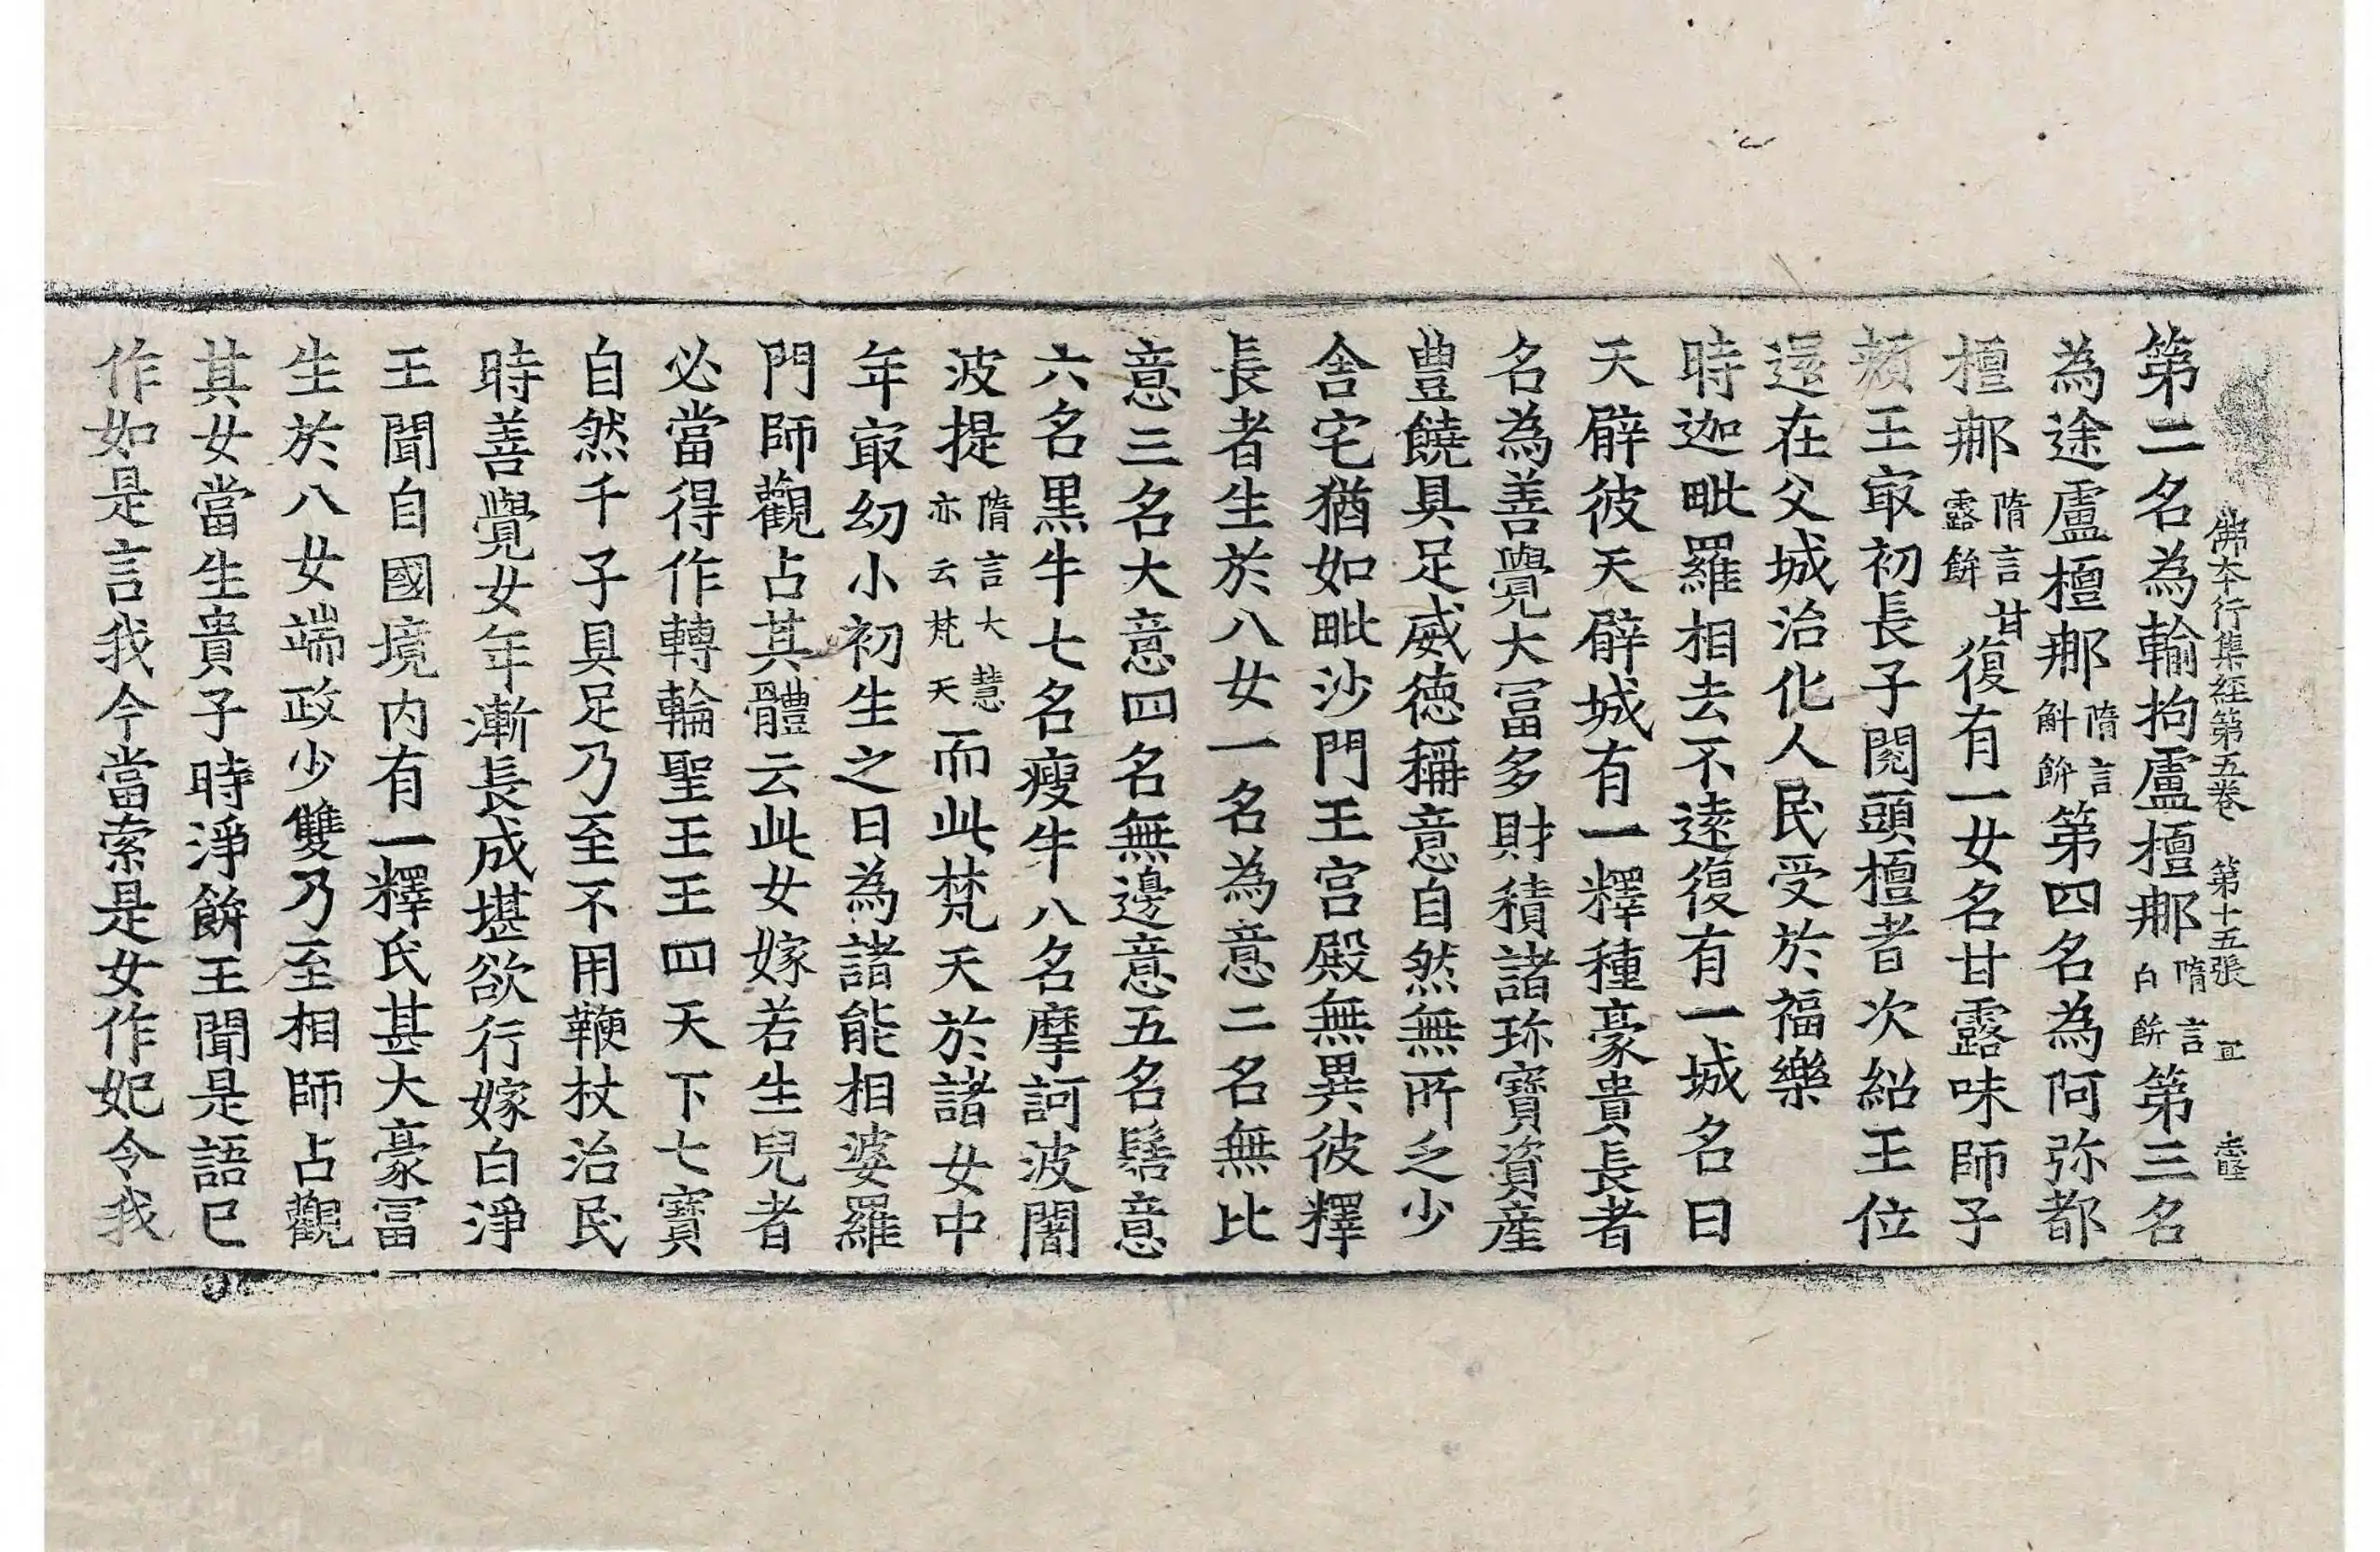 佛本行集經第五卷 第十五張
第二名為輸拘盧檀那隋言白餅第三名
為途盧檀那隋言斛餅第四名為阿弥都
檀那隋言甘露餅復有一女名甘露味師子
頰王㝡初長子閱頭檀者次紹王位
還在父城治化人民受於福樂
時迦毗羅相去不遠復有一城名曰
天臂彼天臂城有一釋種豪貴長者
名為善覺大冨多財積諸珎寶資産
豊饒具足威德稱意自然無所乏少
舍宅猶如毗沙門王宫殿無異彼釋
長者生於八女一名為意二名無比
意三名大意四名無邊意五名髻意
六名黒牛七名瘦牛八名摩訶波闍
波提隋言大慧亦云梵天而此梵天於諸女中
年㝡幼小初生之日為諸能相婆羅
門師觀占其體云此女嫁若生兒者
必當得作轉輪聖王王四天下七寶
自然千子具足乃至不用鞭杖治民
時善覺女年漸長成堪欲行嫁白淨
王聞自國境内有一釋氏甚大豪冨
生於八女端政少雙乃至相師占觀
其女當生貴子時淨餅王聞是語已
作如是言我今當索是女作妃令我